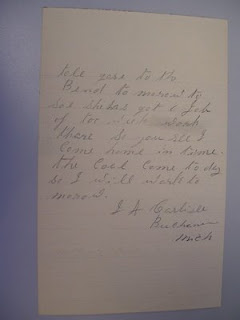 gone to th
Bend to morow to
see
got a Job
of work
there so you see I
Come home in time.
the Coal Come to day
so I will want to
morow.
J A Carlisle
Buchanan
Mich